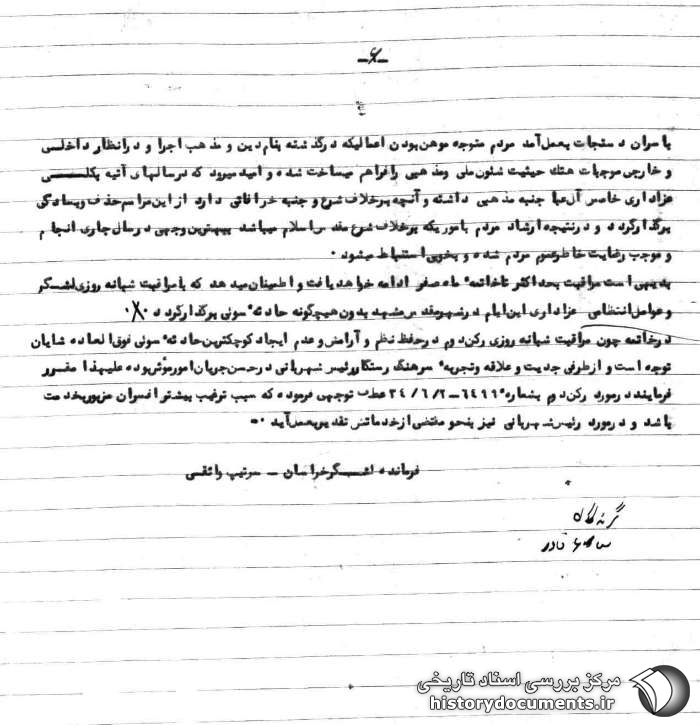 -۶-
با سران دستجات بعمل آمد مردم متوجه موهن بودن اعمالیکه در گذشته بنام دین و مذهب اجرا و در انظار داخلی
و خارجی موجبات هتك حیثیت شئون ملی و مذهبی را فراهم میساخت شده و امید میرود که در سالهای آتیه بکلی
عزاداری خاص آل عبا جنبه مذهبی داشته و آنچه برخلاف شرع و جنبه خرافاتی دارد از این مراسم حذف و بسادگی
برگذار گردد و در نتیجه ارشاد مردم باموریکه برخلاف شرع مقدس اسلام میباشد ببهترین وجهی در سال جاری انجام
و موجب رضایت خاطر عموم مردم شده و بخوبی استنباط میشود ۰
بدیهی است مراقبت بحد اکثر تا خاتمه ماه صفر ادامه خواهد یافت و اطمینان میدهد که با مراقبت شبانه روزی لشگر
و عوامل انتظامی عزاداری این ایام در شهر مقدس مشهد بدون هیچگونه حادثه سوئی برگذار گردد ۰
در خاتمه چون مراقبت شبانه روزی رکن دوم در حفظ نظم و آرامش و عدم ایجاد کوچکترین حادثه سوئی فوق العاده شایان
توجه است و از طرفی جدیت و علاقه و تجربه سرهنگ رستگار رئیس شهربانی در حسن جریان امور موثر بوده علیهذا مقرر
فرمایند در مورد رکن دوم بشماره ۶۴۹۹-۳۴/۶/۲ عطف توجهی فرموده که سبب ترغیب بیشتر افسران مزبور بخدمت
باشد و در مورد رئیس شهربانی نیز بنحو مقتضی از خدماتش تقدیر بعمل آید ۰-
فرمانده لشگر خراسان - سرتیپ واثقی
مرکز بررسی اسناد تاریخی
historydocuments.ir